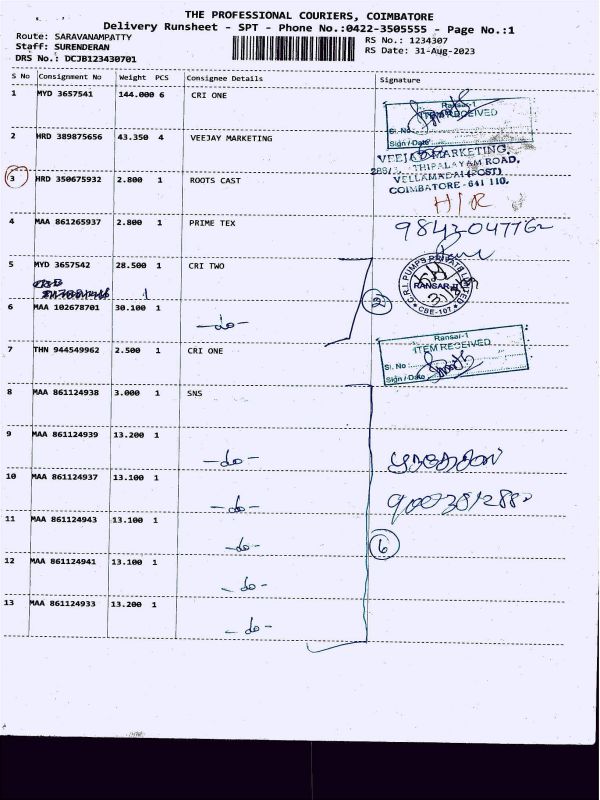 THE PROFESSIONAL COURIERS, COIMBATORE
Delivery Runsheet - SPT - Phone No.:0422-3505555 - Page No.:1
Route: SARAVANAMPATTY
Staff: SURENDERAN
DRS No.: DCJB123430701
RS No.: 1234307
RS Date: 31-Aug-2023
S No Consignment No Weight PCS Consignee Details Signature
1 MYD 3657541 144.000 6 CRI ONE
Ransar-1
ITEM RECEIVED
Sl. No
Sign/Date
2 HRD 389875656 43.350 4 VEEJAY MARKETING
VEEJAY MARKETING,
THIPALAYAM ROAD,
VELLAMADAI (POST)
COIMBATORE - 641 110.
3 HRD 350675932 2.800 1 ROOTS CAST
H/R
4 MAA 861265937 2.800 1 PRIME TEX
98432047762
5 MYD 3657542 28.500 1 CRI TWO
1
C.R.I. PUMPS PRIVATE LIMITED
RANSAR-II
CBE-107
2
6 MAA 102678701 30.100 1 -do-
7 THN 944549962 2.500 1 CRI ONE
Ransar-1
ITEM RECEIVED
Sl. No :
Sign / Date
8 MAA 861124938 3.000 1 SNS
9 MAA 861124939 13.200 1 -do-
10 MAA 861124937 13.100 1 -do-
11 MAA 861124943 13.100 1 -do-
6
12 MAA 861124941 13.100 1 -do-
13 MAA 861124933 13.200 1 -do-